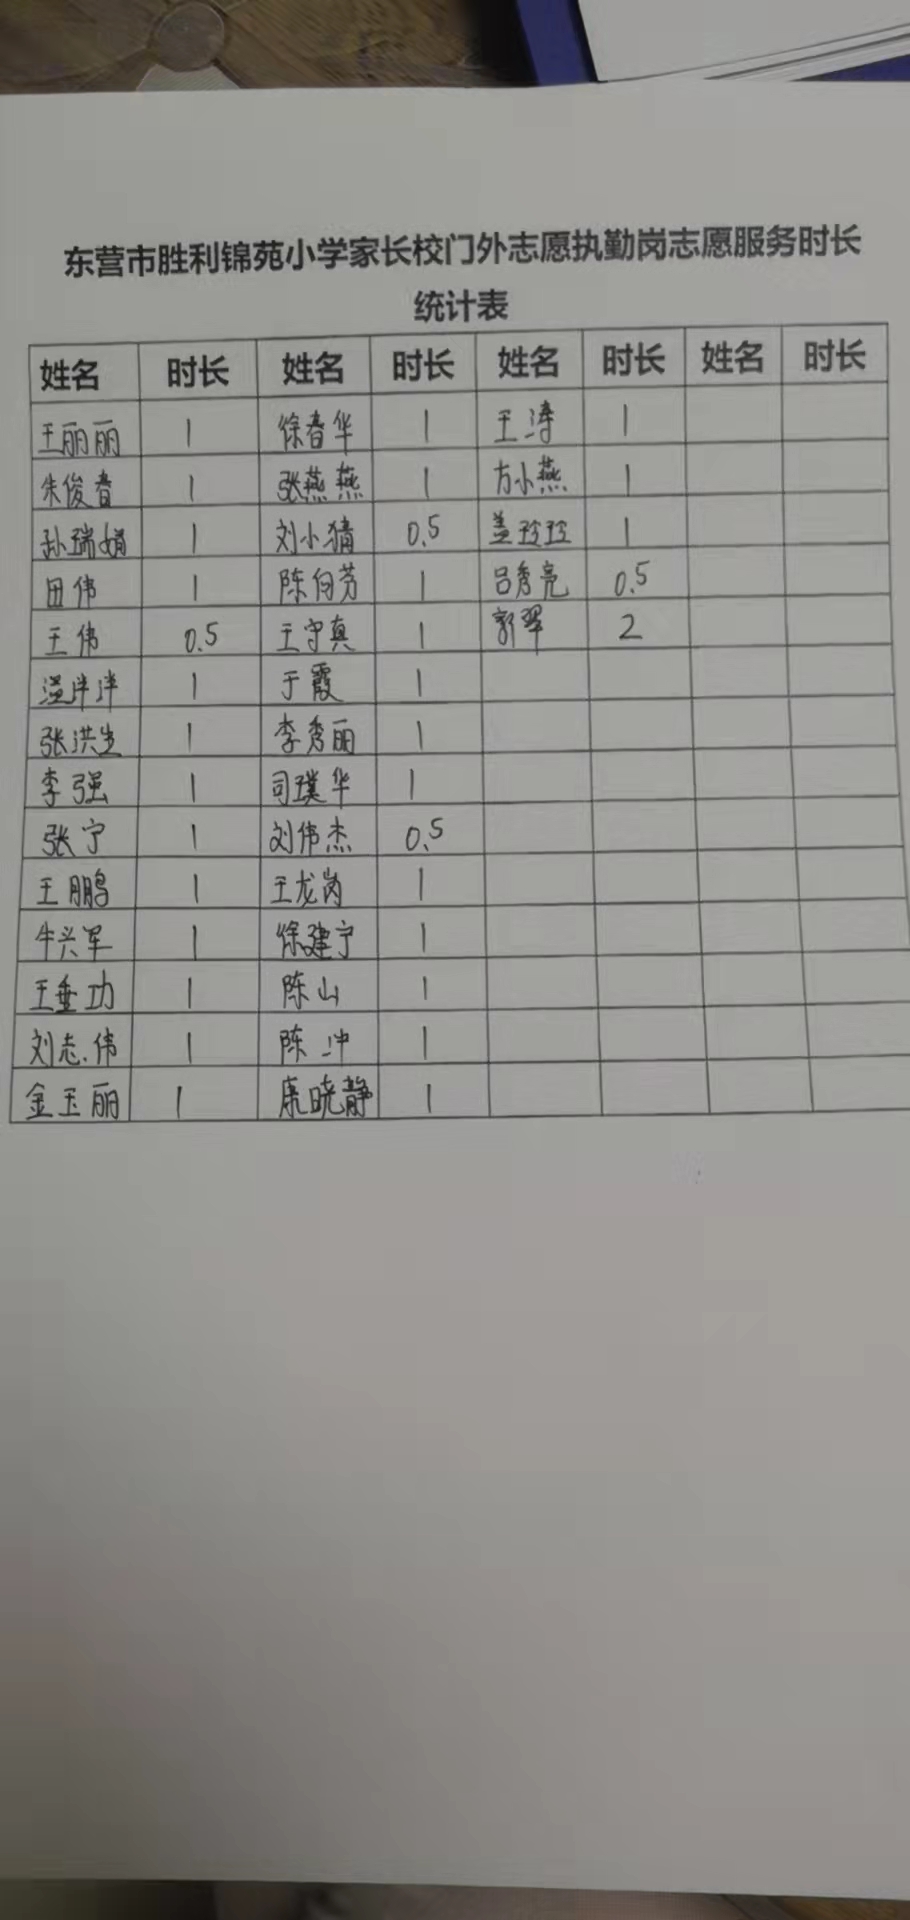 东营市胜利锦苑小学家长校门外志愿执勤岗志愿服务时长
统计表
姓名 时长 姓名 时长 姓名 时长 姓名 时长
王丽丽 1 徐春华 1 王涛 1
朱俊香 1 张燕燕 1 方小燕 1
孙瑞娟 1 刘小猜 0.5 盖玲玲 1
田伟 1 陈向芳 1 吕秀亮 0.5
王伟 0.5 王守真 1 郭翠 2
温洋洋 1 于霞 1
张洪生 1 李秀丽 1
李强 1 司璞华 1
张宁 1 刘伟杰 0.5
王鹏 1 王龙岗 1
牛兴军 1 徐建宁 1
王垂功 1 陈山 1
刘志伟 1 陈冲 1
金玉丽 1 康晓静 1